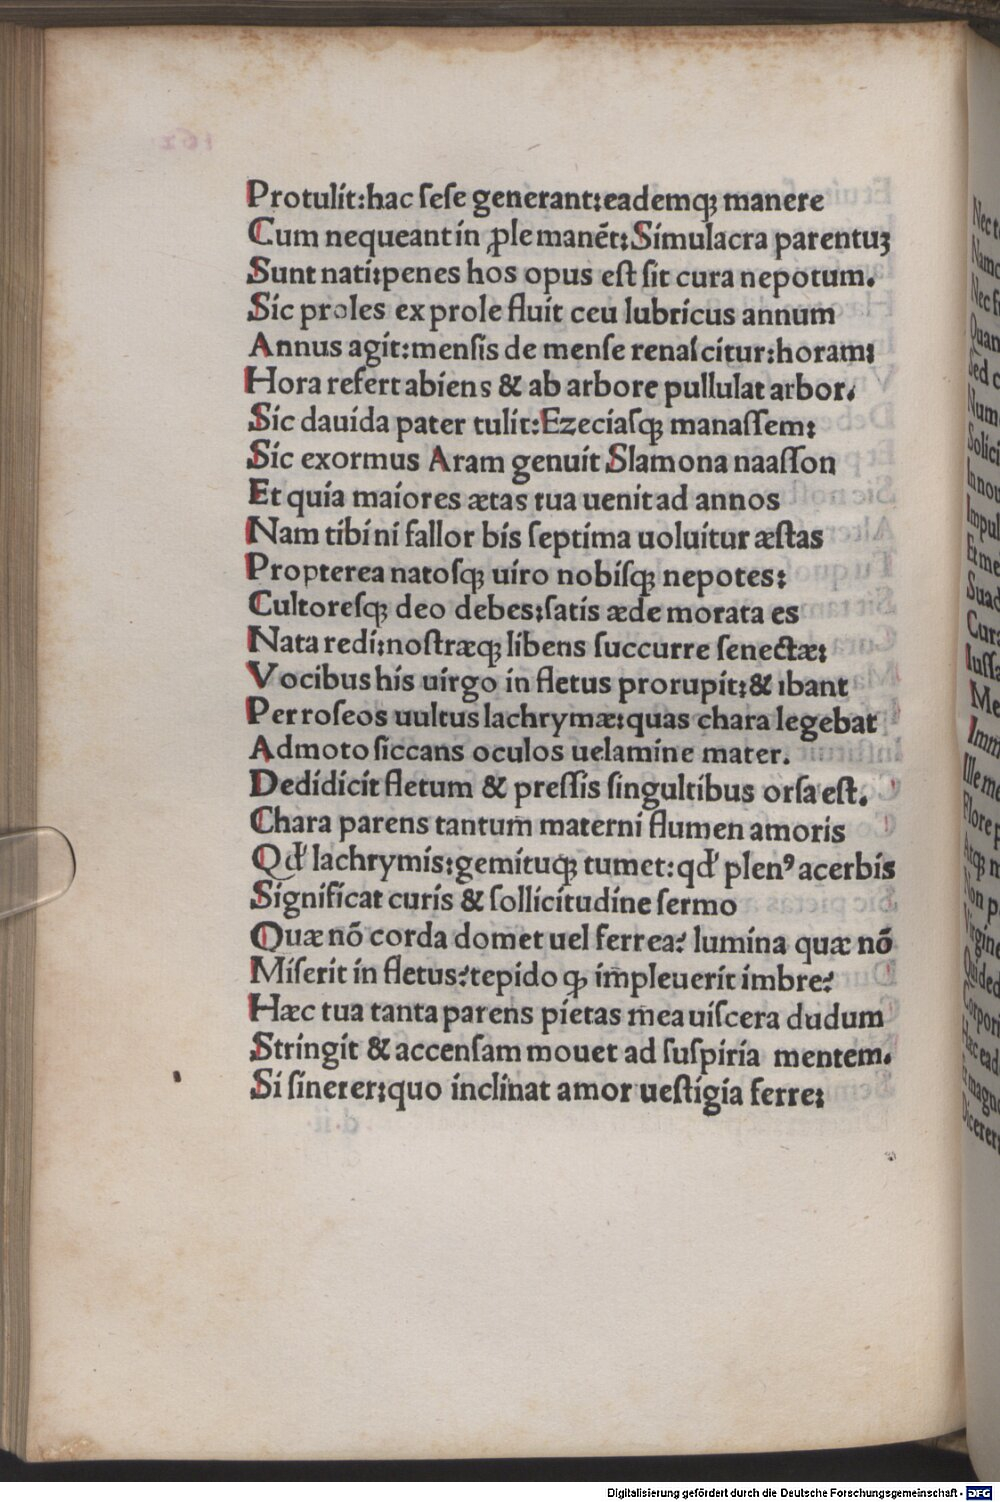 Protulit:hac ſeſe generant:eademqꝫ manere
Cum nequeant in ꝓle manēt:Simulacra parentuꝫ
Sunt nati:penes hos opus eſt ſit cura nepotum.
Sic proles ex prole fluit ceu lubricus annum
Annus agit:menſis de menſe renaſcitur:horam:
Hora refert abiens & ab arbore pullulat arbor.
Sic dauida pater tulit:Ezeciaſqꝫ manaſſem:
Sic exormus Aram genuit Slamona naaſſon
Et quia maiores ætas tua uenit ad annos
Nam tibi ni fallor bis ſeptima uoluitur æſtas
Propterea natoſqꝫ uiro nobiſqꝫ nepotes:
Cultoreſqꝫ deo debes:ſatis æde morata es
Nata redi:noſtræqꝫ libens ſuccurre ſenectæ:
Vocibus his uirgo in fletus prorupit:& ibant
Per roſeos uultus lachrymæ:quas chara legebat
Admoto ſiccans oculos uelamine mater.
Dedidicit fletum & preſſis ſingultibus orſa eſt.
Chara parens tantum materni flumen amoris
Qđ lachrymis:gemituqꝫ tumet:qđ plenꝰ acerbis
Significat curis & ſollicitudine ſermo
Quæ nō corda domet uel ferrea? lumina quæ nō
Miſerit in fletus?tepido qꝫ impleuerit imbre?
Hæc tua tanta parens pietas mea uiſcera dudum
Stringit & accenſam mouet ad ſuſpiria mentem.
Si ſinerer:quo inclinat amor ueſtigia ferre:
Digitalisierung gefördert durch die Deutsche Forschungsgemeinschaft - DFG